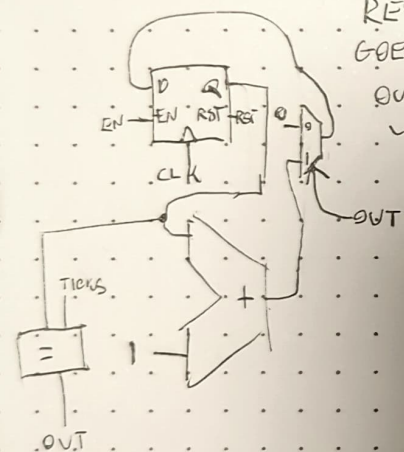 RE
GOE
OU
D Q
EN EN RST RST 0 0
1
CLK
OUT
TICKS
+
=
1
OUT